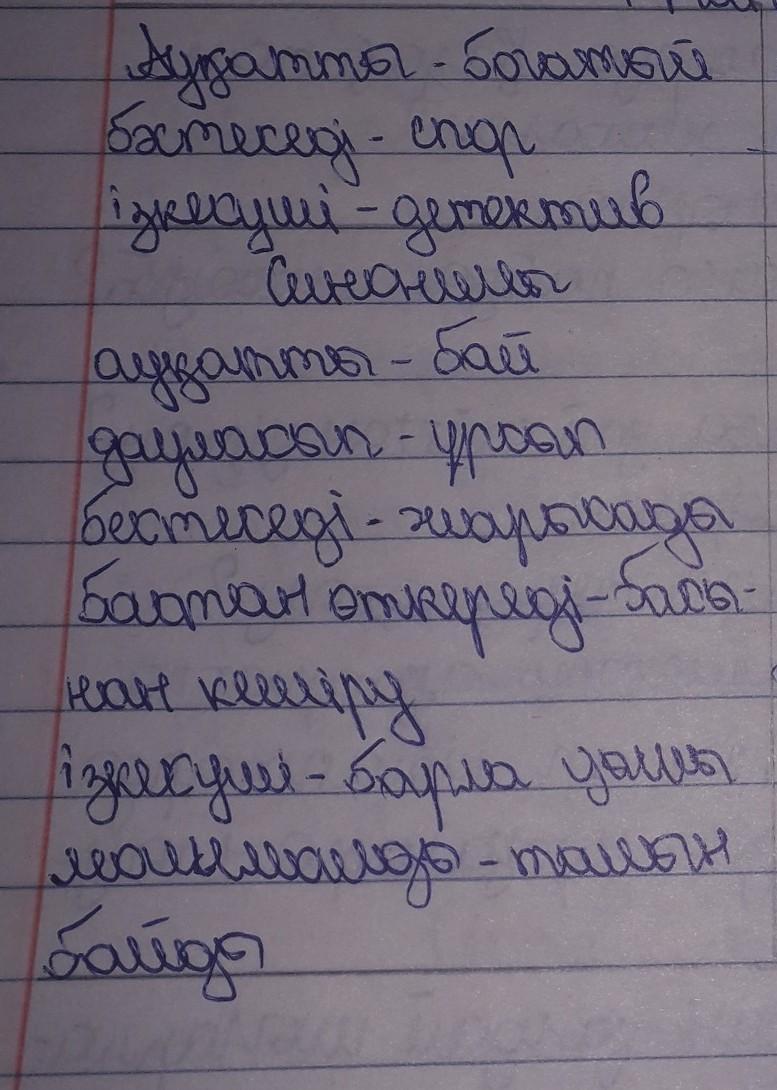 Ауқатты - богатый
бәстеседі - спор
ізкесуші - детектив
Синонимы
ауқатты - бай
дауласып - ұрсып
бектеседі - жарысады
бастан өткереді - басы-
нан кешіру
ізкесуші - барла ушы
мойымайды - тайын
байды